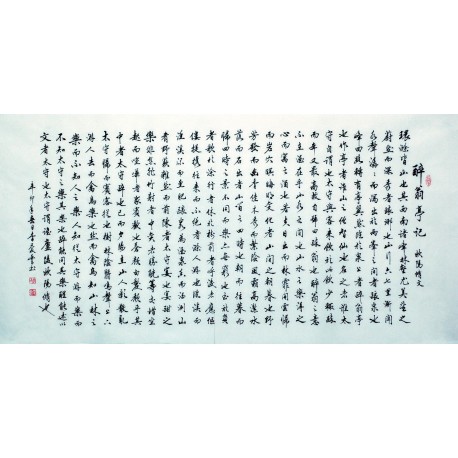 醉翁亭记 欧阳修文
環滁皆山也其西南諸峰林壑尤美望之
蔚然而深秀者琅琊也山行六七里漸聞
水聲潺潺而瀉出於兩峯之間者釀泉也
峰回路轉有亭翼然臨於泉上者醉翁亭
也作亭者誰山之僧智仙也名之者誰太
守自謂也太守與客來飲於此飲少輒醉
而年又最高故自號曰醉翁也醉翁之意
不在酒在乎山水之間也山水之樂得之
心而寓之酒也若夫日出而林霏開雲歸
而岩穴暝晦明變化者山間之朝暮也野
芳發而幽香佳木秀而繁陰風霜高潔水
落而石出者山間之四時也朝而往暮而
歸四時之景不同而樂亦無窮也至於負
者歌於塗行者休於樹前者呼後者應傴
僂提攜往來而不絕者滁人遊也臨溪而
漁溪深而魚肥釀泉為酒泉香而酒洌山
肴野蔌雜然而前陳者太守宴也宴酣之
樂非絲非竹射者中弈者勝觥籌交錯坐
起而喧嘩者眾賓歡也蒼顏白髮頹乎其
中者太守醉也已而夕陽在山人影散亂
太守歸而賓客從也樹林陰翳鳴聲上下
遊人去而禽鳥樂也然而禽鳥知山林之
樂而不知人之樂人知從太守遊而樂而
不知太守之樂其樂也醉能同其樂醒能述以
文者太守也太守謂誰廬陵歐陽修也
辛卯年